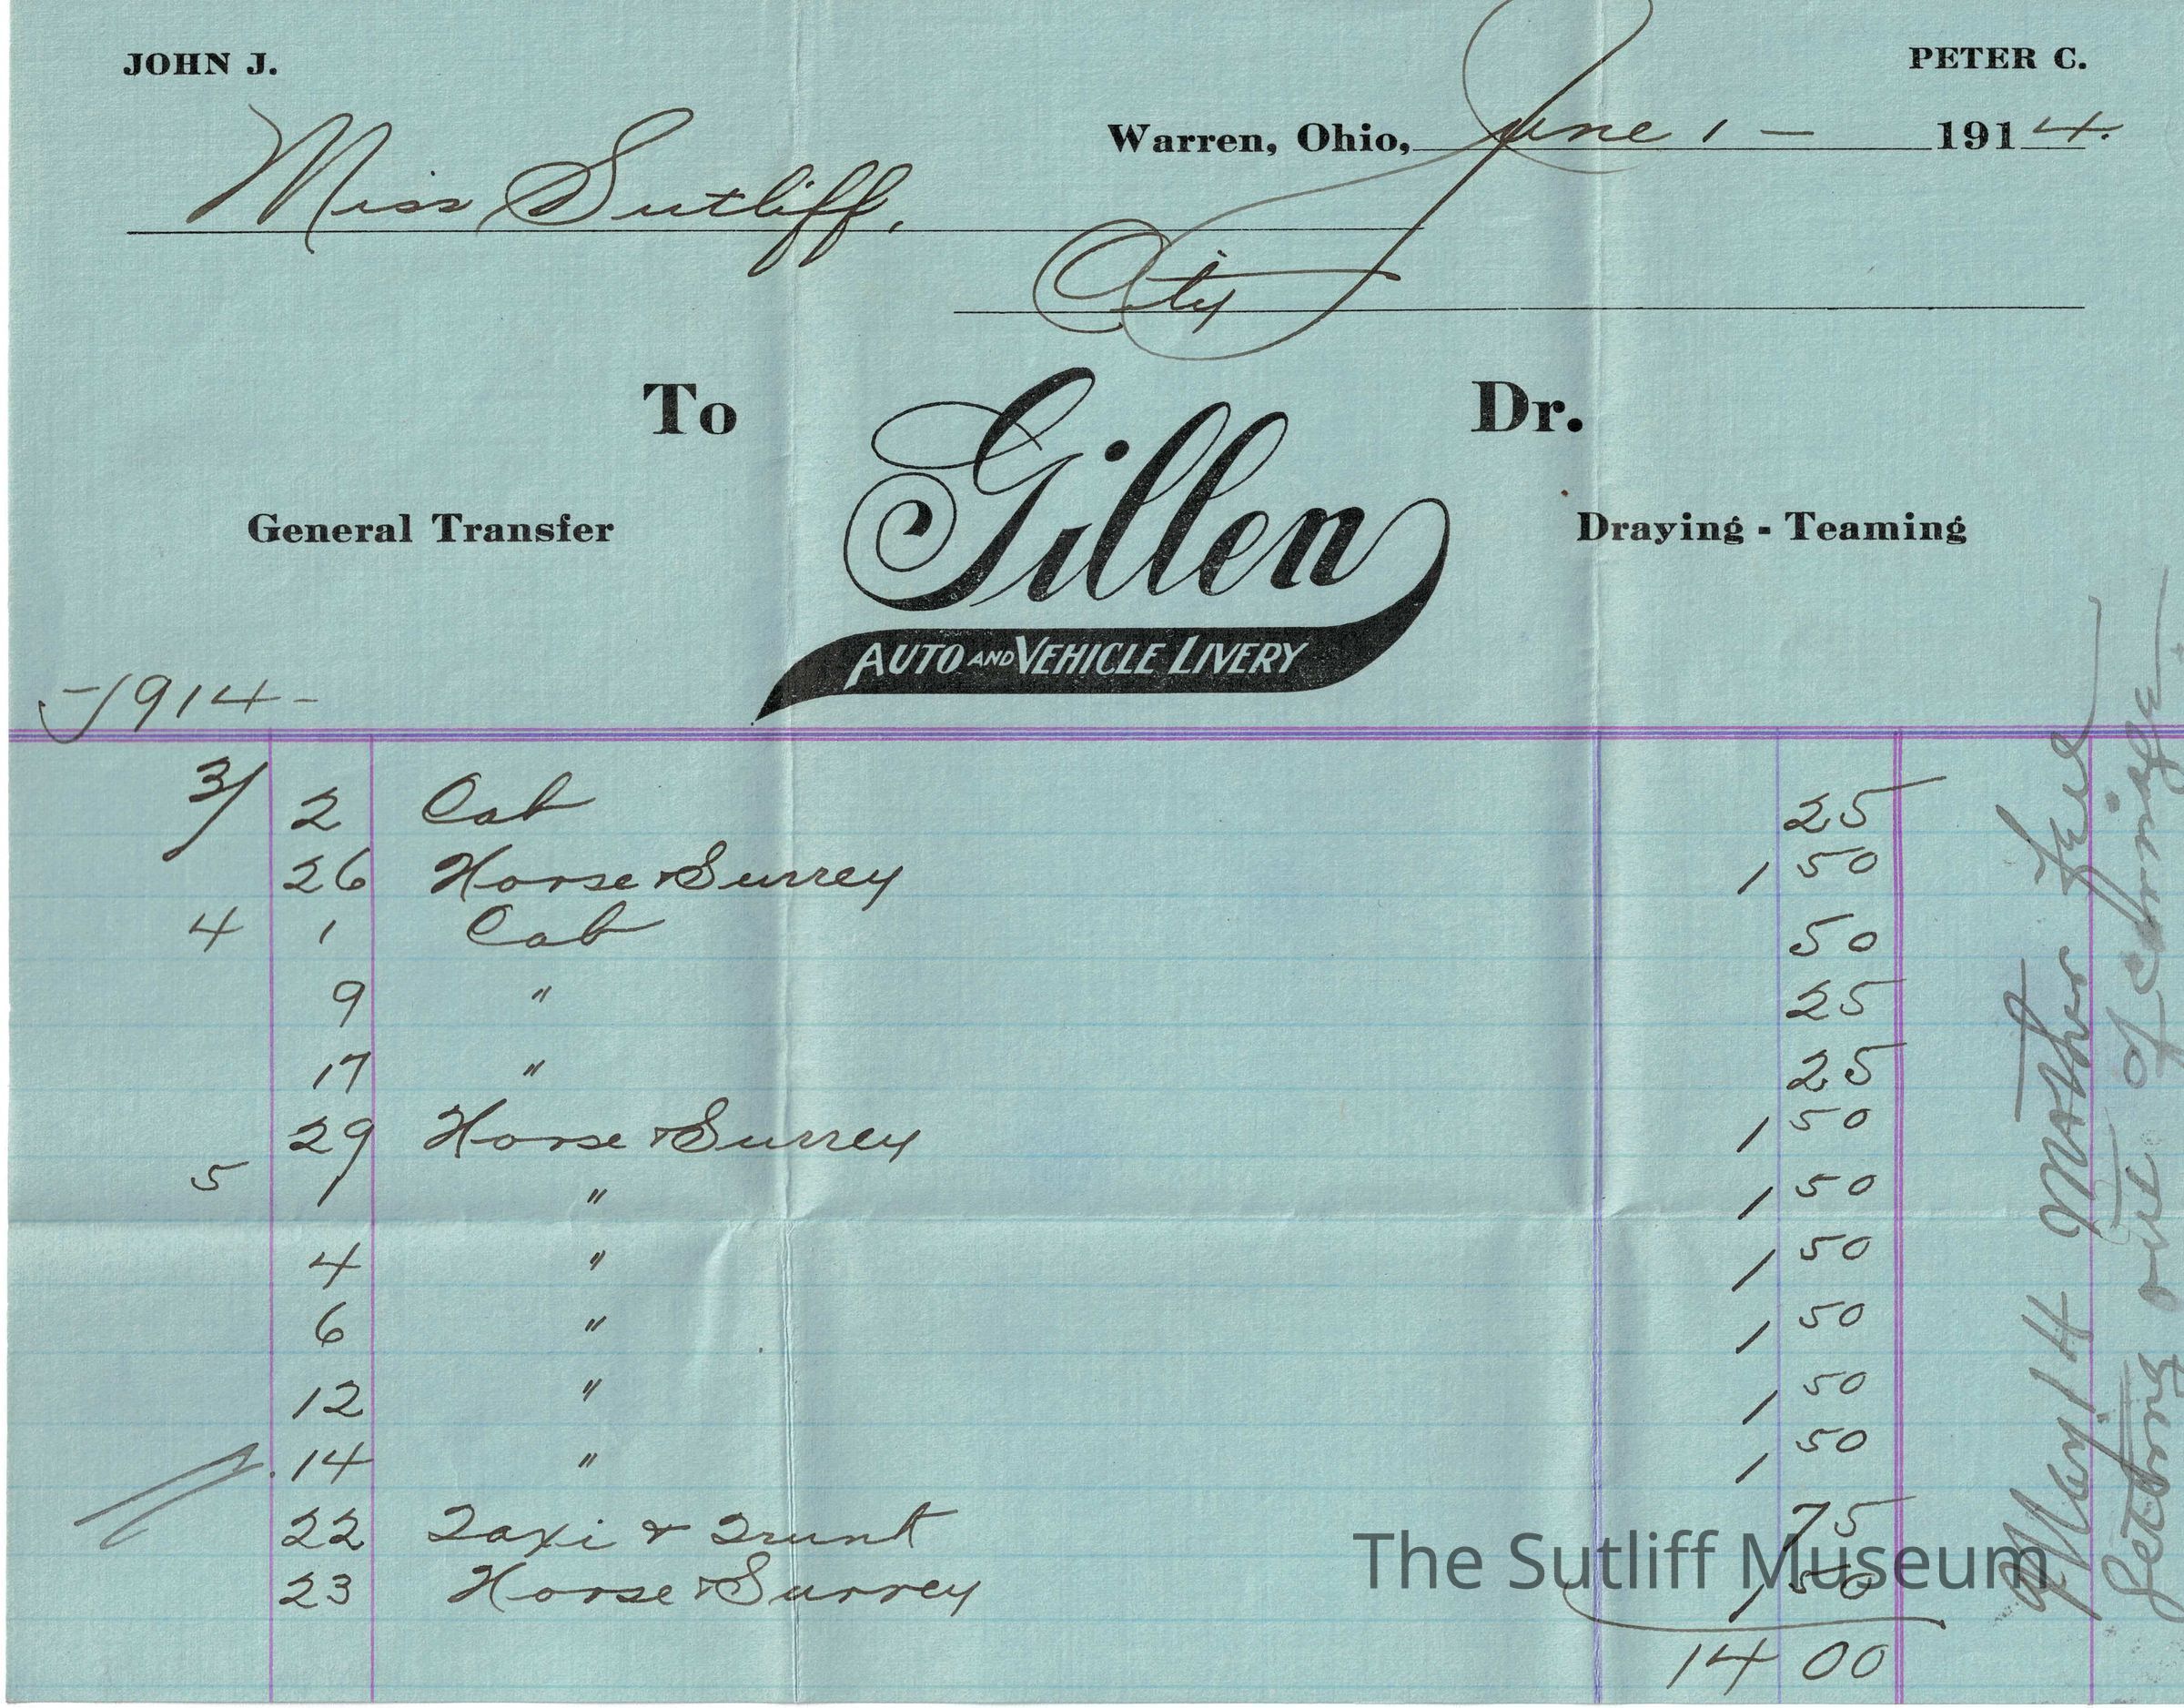 JOHN J. PETER C.
Warren, Ohio, June 1 - 1914.
Miss Sutliff,
City
To Gillen Dr.
General Transfer Draying - Teaming
AUTO AND VEHICLE LIVERY
-1914-
3/ 2 Cab 25
26 Horse & Surrey 1,50
4 1 Cab 50
9 " 25
17 " 25
29 Horse & Surrey 1,50
5 1 " 1,50
4 " 1,50
6 " 1,50
12 " 1,50
14 " 1,50
22 Taxi & Trunk 75
23 Horse & Surrey 1,50
14 00
May 14 Mother fell
Getting out of carriage
The Sutliff Museum